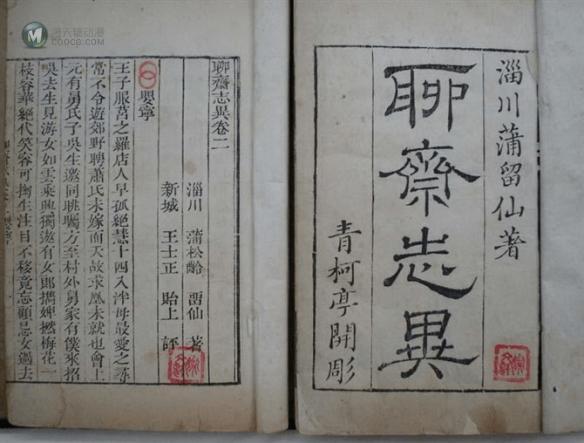 淄川蒲留仙著
聊齋志異
青柯亭開彫
聊齋志異卷二
淄川 蒲松齡 畱仙 著
新城 王士正 貽上 評
嬰寧
王子服莒之羅店人早孤絕慧十四入泮母最愛之尋
常不令遊郊野聘蕭氏未嫁而夭故求凰未就也會上
元有舅氏子吳生邀同眺矚方至村外舅家有僕來招
吳去生見游女如雲乘興獨遨有女郎攜婢撚梅花一
枝容華絕代笑容可掬生注目不移竟忘顧忌女過去
COOC8.COM